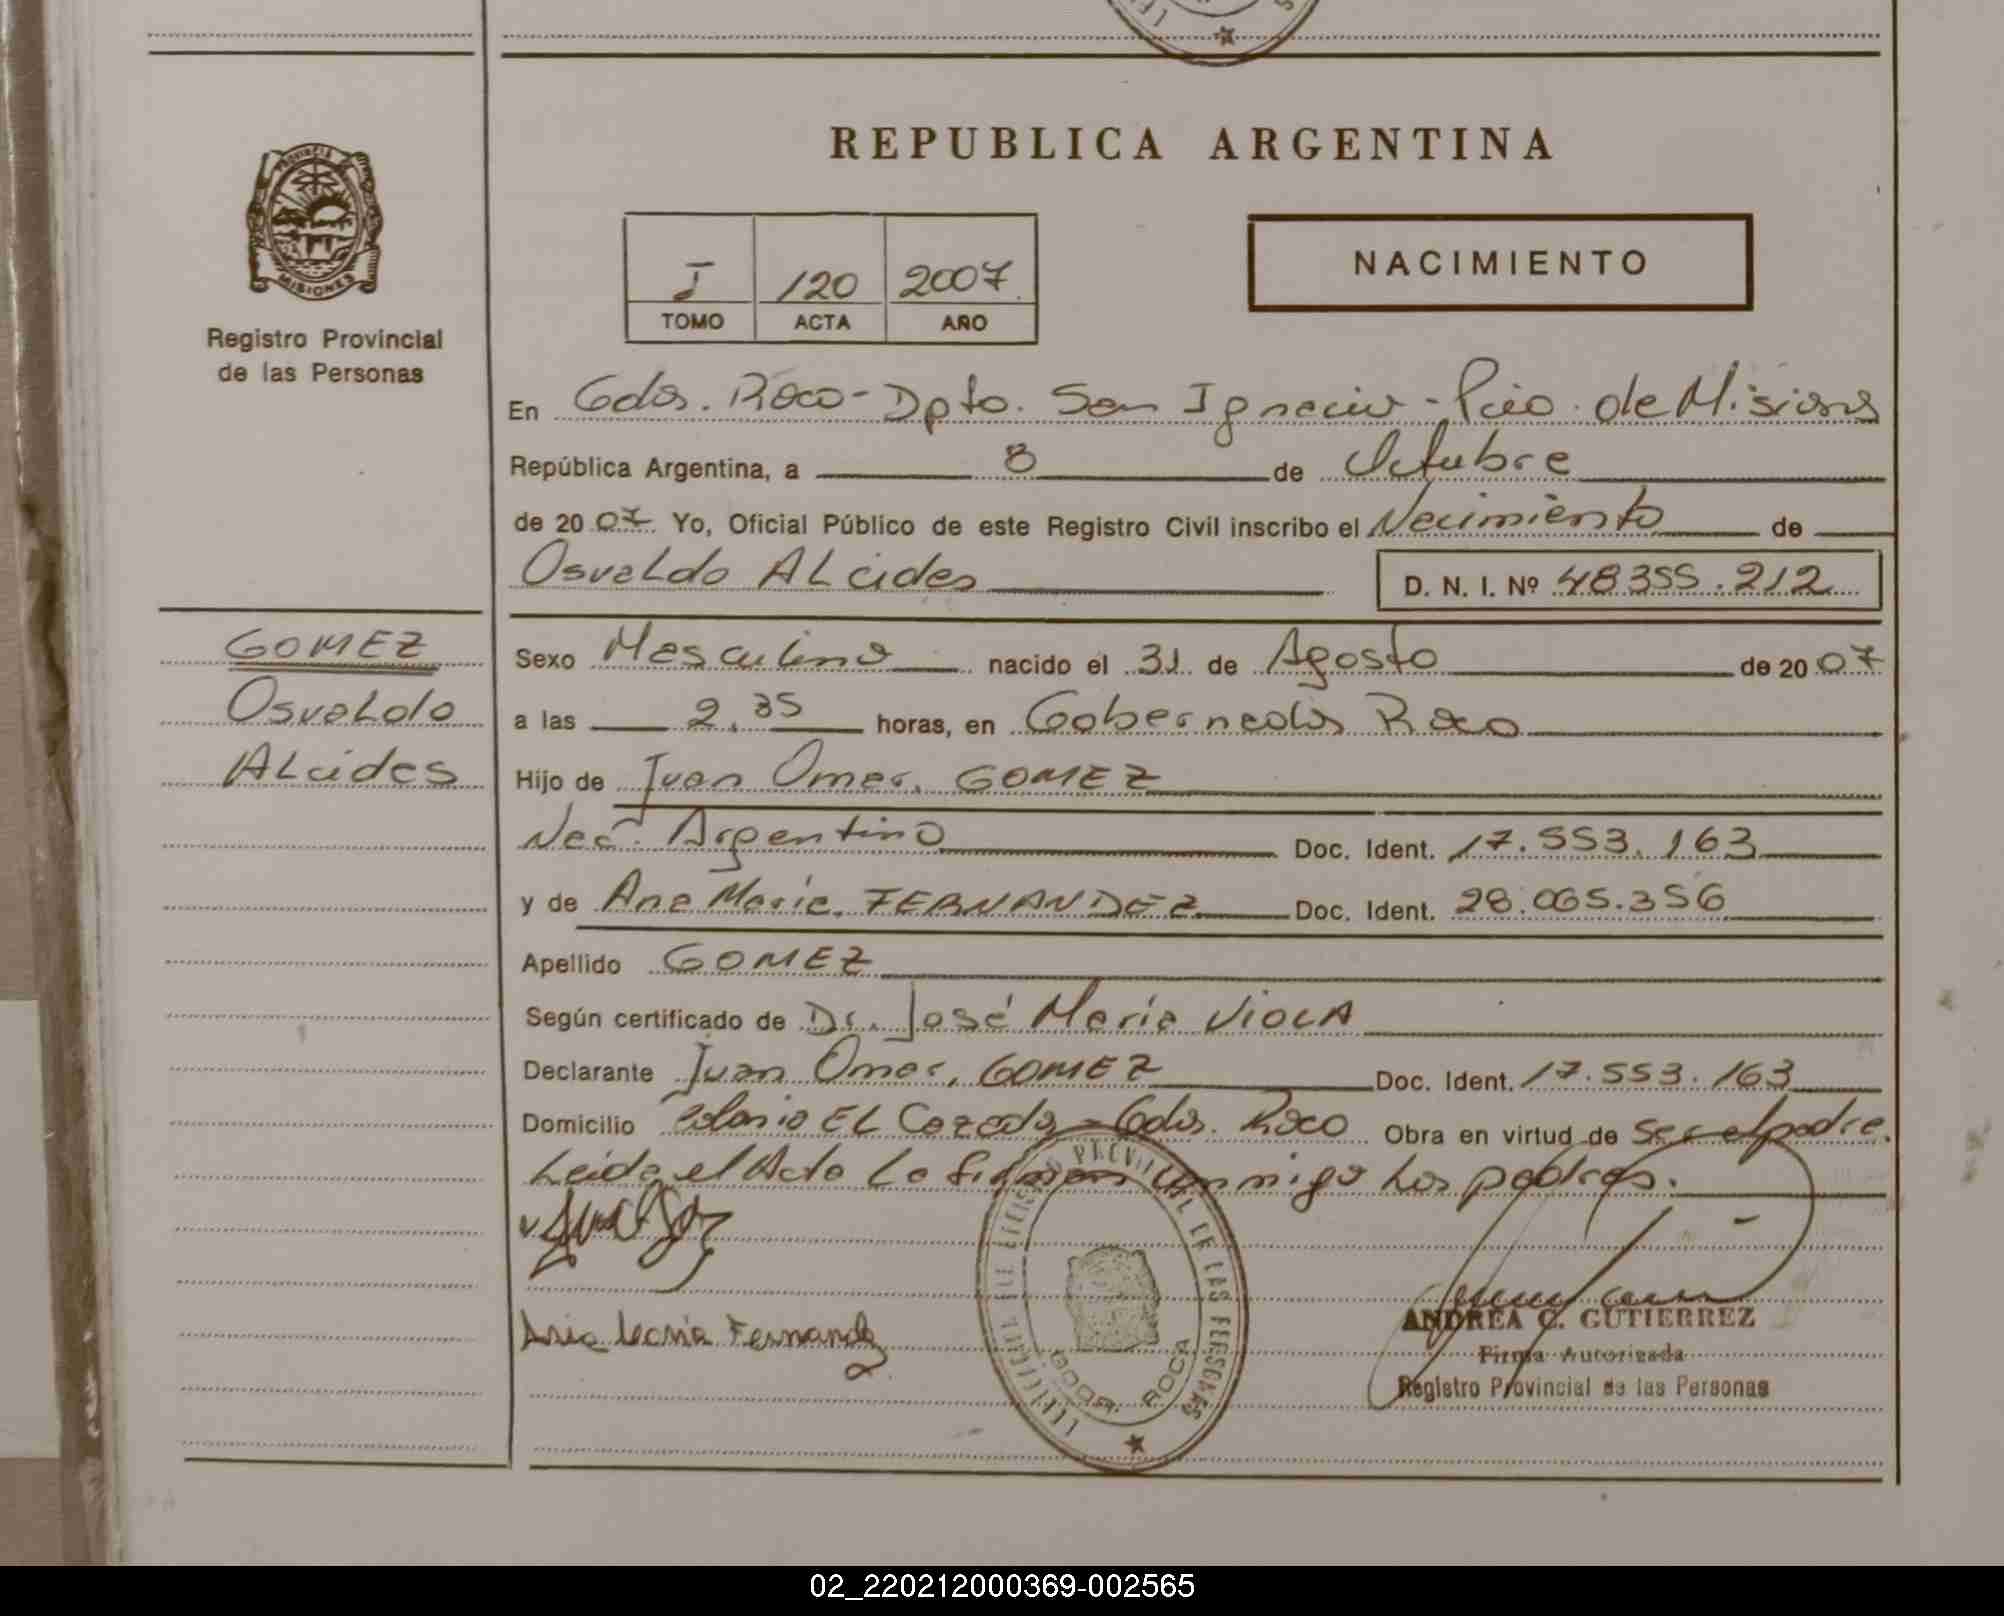 REPUBLICA ARGENTINA
PROVINCIA
MISIONES
Registro Provincial
de las Personas
NACIMIENTO
I 120 2007
TOMO ACTA AÑO
En Gdor. Roca - Dpto. San Ignacio - Pcia. de Misiones
República Argentina, a 8 de Octubre
de 20 07 Yo, Oficial Público de este Registro Civil inscribo el Nacimiento de
Osvaldo ALcides D. N. I. Nº 48355.212
GOMEZ
Osvaldo
ALcides
Sexo Masculino nacido el 31 de Agosto de 20 07
a las 2.35 horas, en Gobernador Roca
Hijo de Juan Omar, GOMEZ
Nac. Argentino Doc. Ident. 17.553.163
y de Ana María, FERNANDEZ Doc. Ident. 28.065.356
Apellido GOMEZ
Según certificado de Dr. José María VIOLA
Declarante Juan Omar, GOMEZ Doc. Ident. 17.553.163
Domicilio Colonia EL Cazador - Gdor. Roca Obra en virtud de ser el padre.
Leida el Acta La firman conmigo Los padres.
Ana María Fernandez
PROVINCIAL DE LAS PERSONAS
GDOR. ROCA
ANDREA C. GUTIERREZ
Firma Autorizada
Registro Provincial de las Personas
02_220212000369-002565